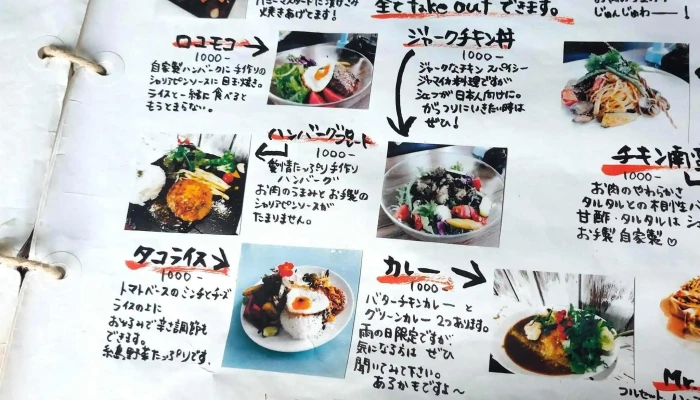 焼きあげてます!
全てtake outできます。
じゅんじゅわー!
ロコモコ
1000-
自家製ハンバーグに手作りの
シャリアピンソースに目玉焼き。
ライスと一緒に食べると
もうとまらない。
ジャークチキン丼
1000-
ジャークなチキン スパイシー
ジャマイカ料理ですが
シェフが日本人向けに。
がっつりいきたい時は
ぜひ!
ハンバーグプレート
1000-
愛情たっぷり手作り
ハンバーグ
お肉のうまみとお手製の
シャリアピンソースが
たまりません。
チキン南蛮
1000-
お肉のやわらかさ
タルタルとの相性
甘酢・タルタルは
お手製 自家製♡
タコライス
1000-
トマトベースのミンチとチーズ
ライスの上に
お好みで辛さ調節も
できます。
糸島野菜たっぷりです。
カレー
1000
バターチキンカレーと
グリーンカレー 2つあります。
雨の日限定ですが
気になる方は ぜひ
聞いてみて下さい。
あるかもですよ~
Mr.
フルセット